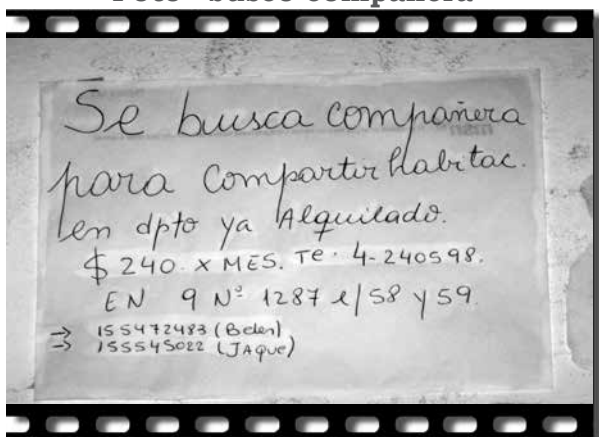 Se busca compañera
para compartir habitac.
en dpto ya Alquilado.
$ 240. x MES. Te. 4-240598.
EN 9 Nº 1287 e/58 y 59.
→ 155472483 (Belen)
→ 155545022 (JAQUE)